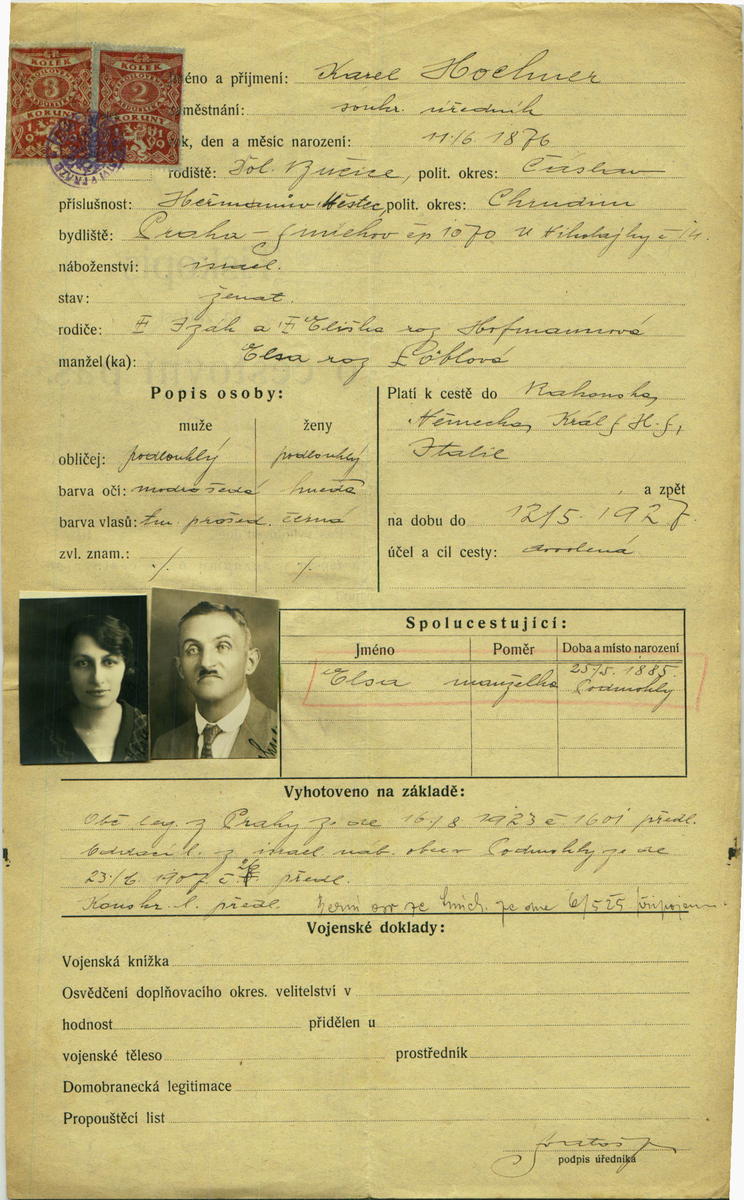 ČR
KOLEK
3
KORUNY
ČR
KOLEK
2
KORUNY
1919
Jméno a příjmení: Karel Hochner
zaměstnání: soukr. úředník
rok, den a měsíc narození: 11./6. 1876
rodiště: Dol. Bučice, polit. okres: Čáslav
příslušnost: Heřmanův Městec, polit. okres: Chrudim
bydliště: Praha - Smíchov čp 1070 U Nikolajky č 14.
náboženství: israel.
stav: ženat.
rodiče: Izák a Eliška roz Hofmannová
manžel (ka): Elsa roz Löblová
Popis osoby:
muže ženy
obličej: podlouhlý podlouhlý
barva očí: modrošedé hnědé
barva vlasů: tm. prošed. černá
zvl. znam.: ./. ./.
Platí k cestě do Rakouska,
Německa, Král S. H. S.,
Italie
, a zpět
na dobu do 12/5. 1927.
účel a cíl cesty: dovolená
Spolucestující:
Jméno Poměr Doba a místo narození
Elsa manželka 25/5. 1885.
Podmokly
Vyhotoveno na základě:
Obč leg. z Prahy ze de 16./8. 1923 č 1601 předl.
Oddací l. z israel. náb. obce v Podmokly ze de
23./6. 1907 č. předl.
Konskr. l. předl. ze dne 6/5 25 připojeno
Vojenské doklady:
Vojenská knížka
Osvědčení doplňovacího okres. velitelství v
hodnost přidělen u
vojenské těleso prostředník
Domobranecká legitimace
Propouštěcí list
podpis úředníka